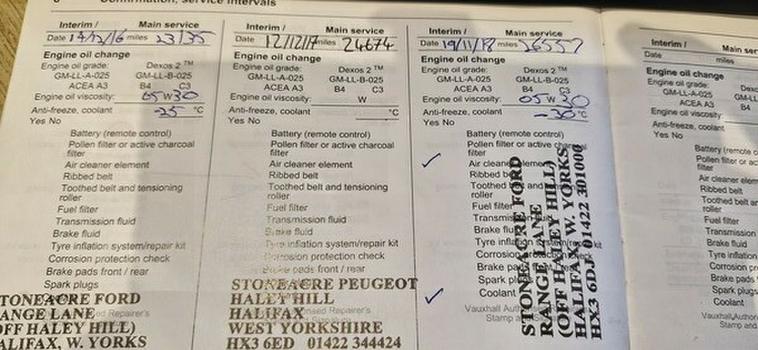 Confirmation, service intervals
Interim / Main service
Date 14/12/16 miles 23135
Engine oil change
Engine oil grade: Dexos 2 ™
GM-LL-A-025 GM-LL-B-025
ACEA A3 B4 C3
Engine oil viscosity: 05 W 30
Anti-freeze, coolant -25 °C
Yes No
Battery (remote control)
Pollen filter or active charcoal
filter
Air cleaner element
Ribbed belt
Toothed belt and tensioning
roller
Fuel filter
Transmission fluid
Brake fluid
Tyre inflation system/repair kit
Corrosion protection check
Brake pads front / rear
Spark plugs
STONEACRE FORD
RANGE LANE
(OFF HALEY HILL)
HALIFAX, W. YORKS
Interim / Main service
Date 12/12/17 miles 24674
Engine oil change
Engine oil grade: Dexos 2 ™
GM-LL-A-025 GM-LL-B-025
ACEA A3 B4 C3
Engine oil viscosity: W
Anti-freeze, coolant °C
Yes No
Battery (remote control)
Pollen filter or active charcoal
filter
Air cleaner element
Ribbed belt
Toothed belt and tensioning
roller
Fuel filter
Transmission fluid
Brake fluid
Tyre inflation system/repair kit
Corrosion protection check
Brake pads front / rear
STONEACRE PEUGEOT
HALEY HILL
HALIFAX
WEST YORKSHIRE
HX3 6ED 01422 344424
Interim / Main service
Date 19/11/18 miles 26557
Engine oil change
Engine oil grade: Dexos 2 ™
GM-LL-A-025 GM-LL-B-025
ACEA A3 B4 C3
Engine oil viscosity: 05 W 30
Anti-freeze, coolant -30 °C
Yes No
Battery (remote control)
Pollen filter or active charcoal
filter
Air cleaner element
Ribbed belt
Toothed belt and tensioning
roller
Fuel filter
Transmission fluid
Brake fluid
Tyre inflation system/repair kit
Corrosion protection check
Brake pads front / rear
Spark plugs
Coolant
Vauxhall
Stamp and
STONEACRE FORD
RANGE LANE
(OFF HALEY HILL)
HALIFAX, W. YORKS
HX3 6DA 01422 301000
Interim / Main ser
Date miles
Engine oil change
Engine oil grade: Dex
GM-LL-A-025 GM-LL
ACEA A3 B4
Engine oil viscosity:
Anti-freeze, coolant
Yes No
Battery (remote c
Pollen filter or ac
filter
Air cleaner element
Ribbed belt
Toothed belt an
roller
Fuel filter
Transmission fluid
Brake fluid
Tyre inflation syst
Corrosion pr
Brake pads fr
Spark plugs
Coolant
Vauxhall Author
Stamp and